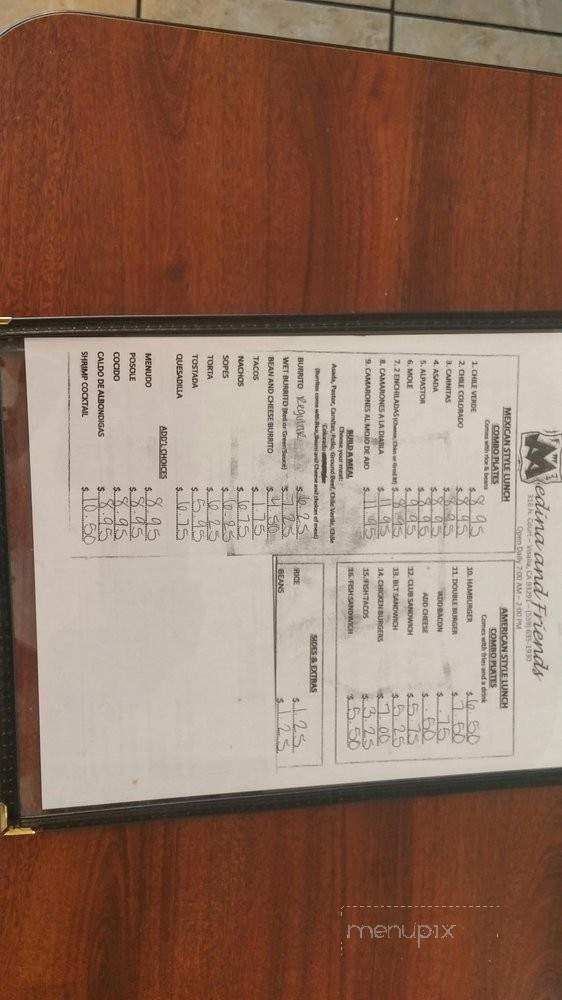 Medina and Friends
316 N. Court - Visalia, CA 93291 (559) 635-1930
Open Daily 7:00 AM - 2:00 PM
MEXICAN STYLE LUNCH
COMBO PLATES
Comes with rice & beans
1. CHILE VERDE $ 8.95
2. CHILE COLORADO $ 8.95
3. CARNITAS $ 8.95
4. ASADA $ 8.95
5. ALPASTOR $ 8.95
6. MOLE $ 8.95
7. 2 ENCHILADAS $ 8.95
8. CAMARONES A LA DIABLA $ 11.95
9. CAMARONES AL MOJO DE AJO $ 11.95
BUILD A MEAL
Choose your meat:
Asada, Pastor, Carnitas, Pollo, Ground Beef, Chile Verde, Chile
Colorado
(Burritos come with Rice, Beans and Cheese and choices of meat)
BURRITO Regular $ 6.25
WET BURRITO (Red or Green Sauce) $ 7.95
BEAN AND CHEESE BURRITO $ 4.50
TACOS $ 1.75
NACHOS $ 6.75
SOPES $
TORTA $ 6.25
TOSTADA $ 5.95
QUESADILLA $ 6.75
ADD'L CHOICES
MENUDO $ 8.95
POSOLE $ 8.95
COCIDO $ 8.95
CALDO DE ALBONDIGAS $ 8.95
SHRIMP COCKTAIL $ 10.50
AMERICAN STYLE LUNCH
COMBO PLATES
Comes with fries and a drink
10. HAMBURGER $ 6.50
11. DOUBLE BURGER $ 7.50
ADD BACON $ .75
ADD CHEESE $ .50
12. CLUB SANDWICH $ 5.75
13. BLT SANDWICH $ 5.25
14. CHICKEN BURGERS $ 7.00
15. FISH TACOS $ 3.25
16. FISH SANDWICH $ 5.50
SIDES & EXTRAS
RICE $ 1.25
BEANS $ 1.25
menupix